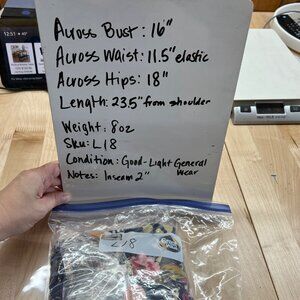 Across Bust: 16"
Across Waist: 11.5" elastic
Across Hips: 18"
Length: 23.5" from shoulder
Weight: 8oz
Sku: L18
Condition: Good-Light General
Wear
Notes: Inseam 2"
L18